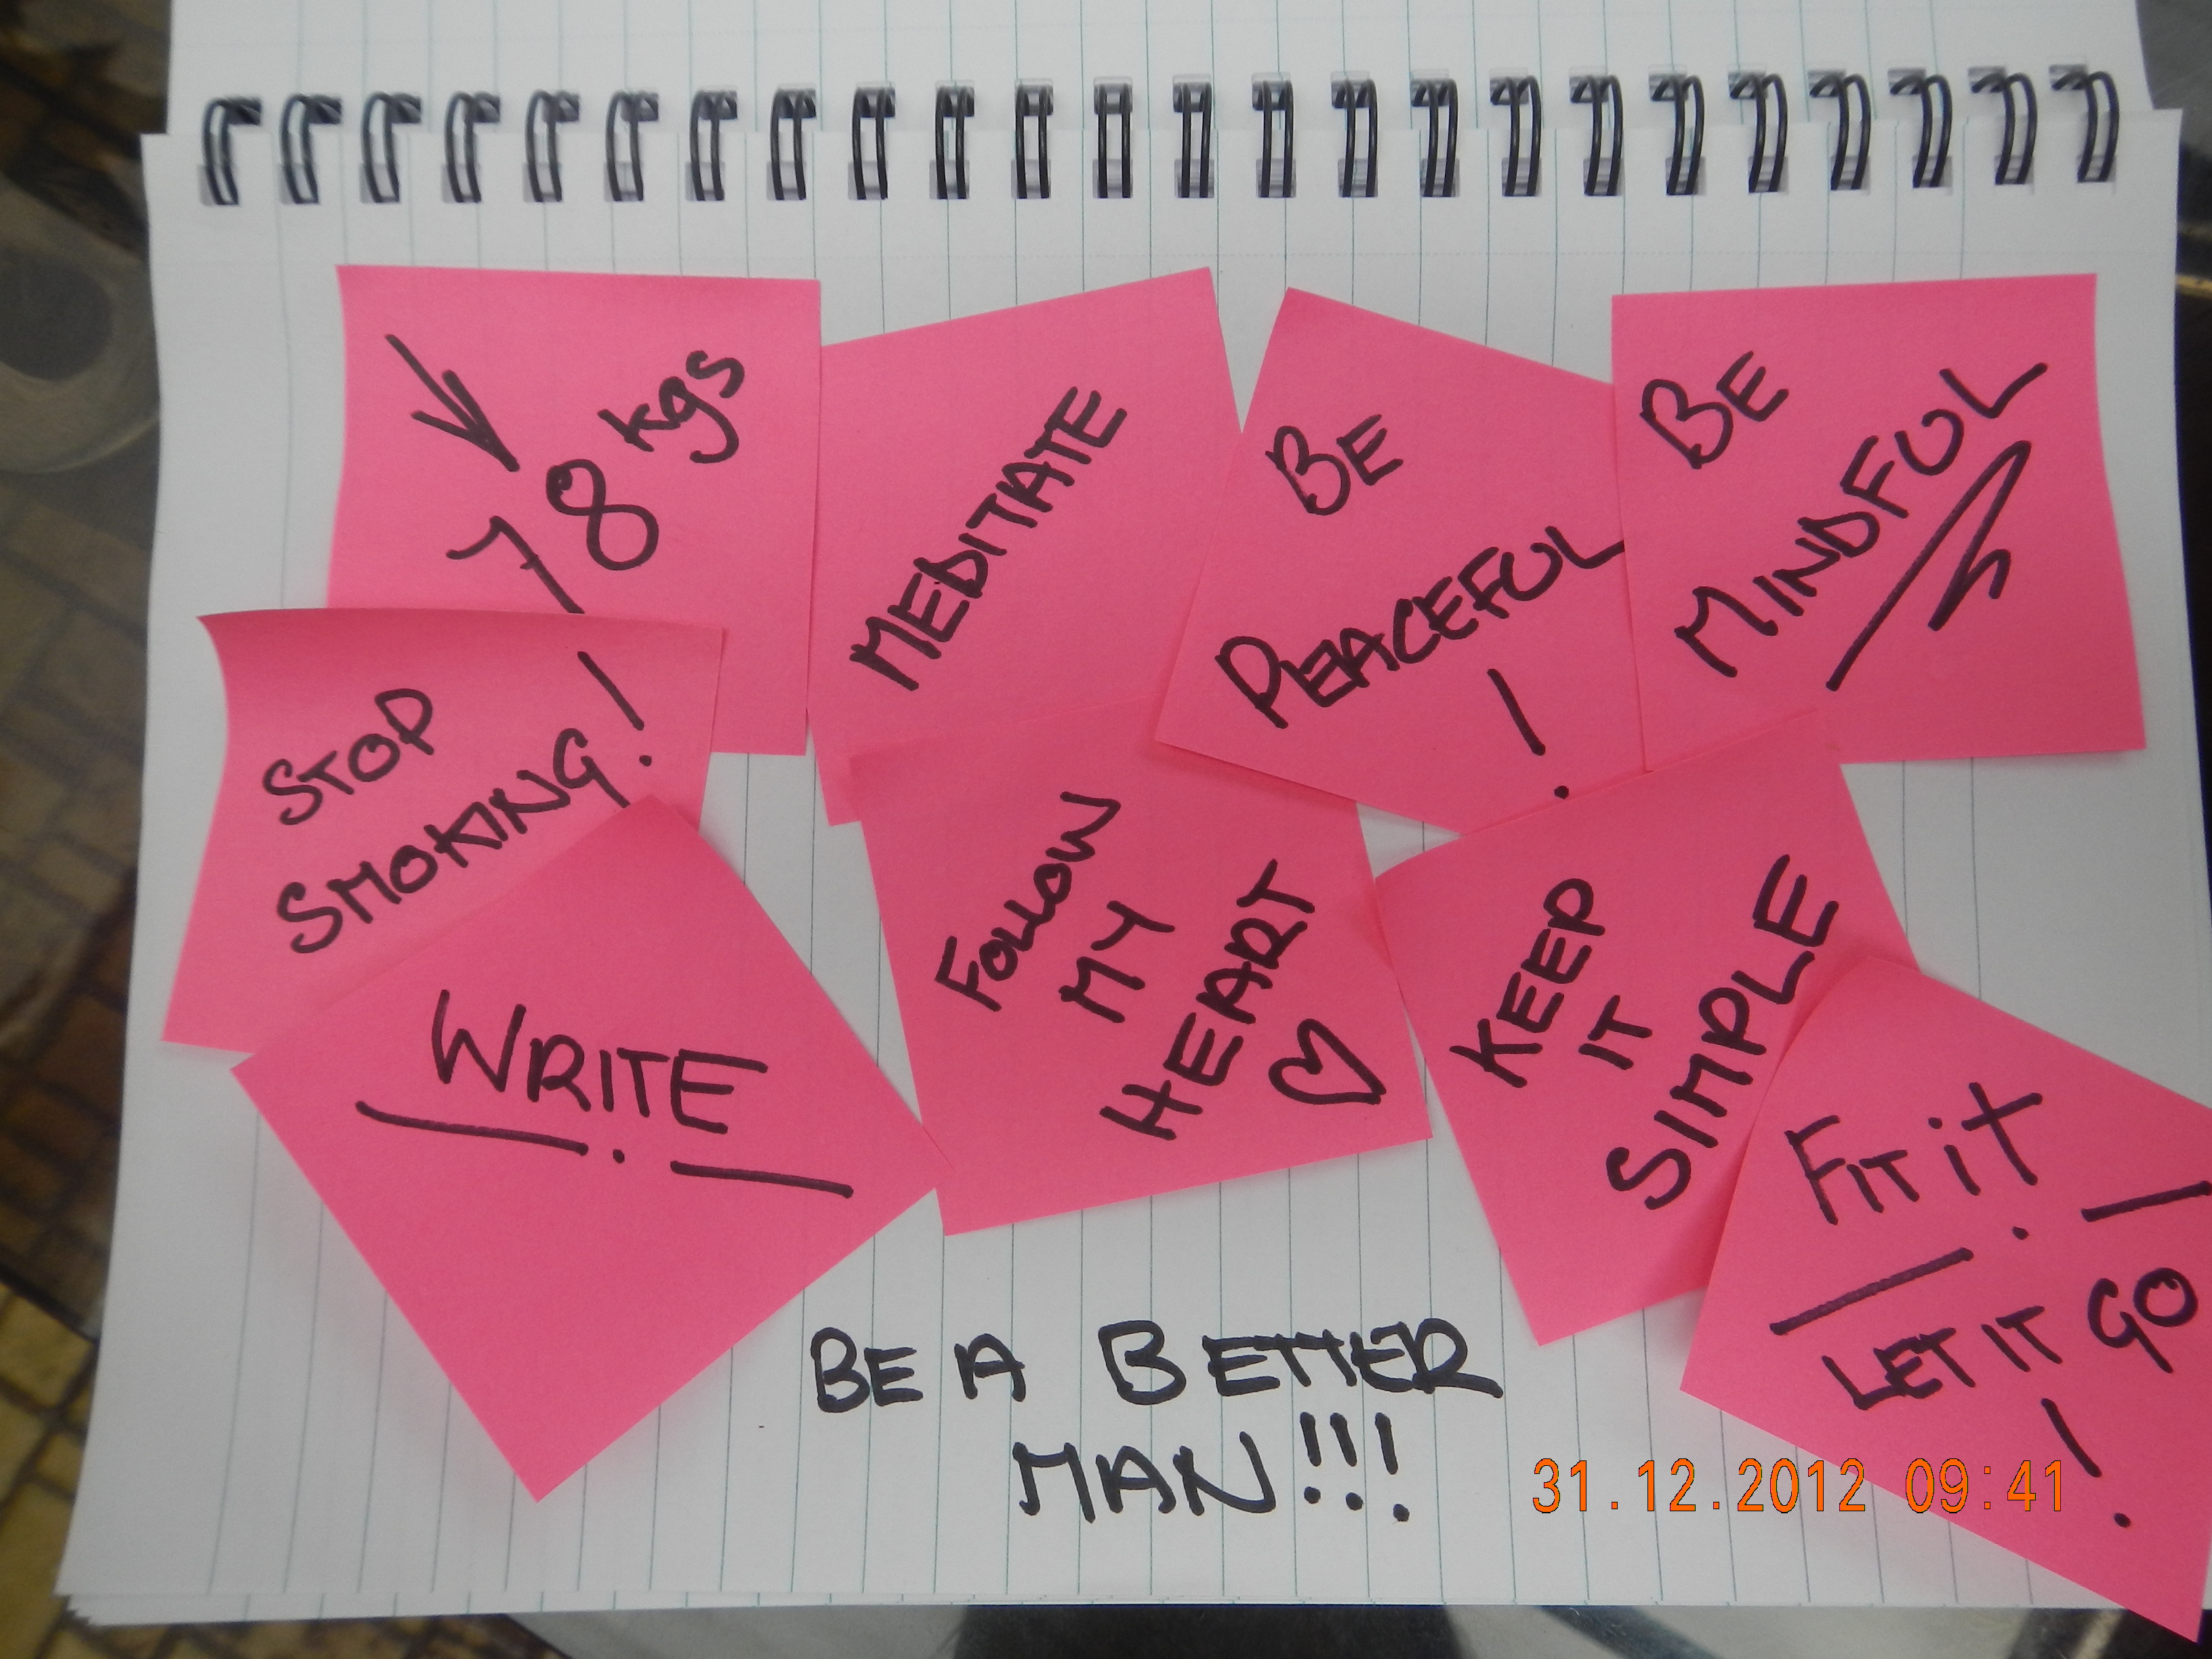 ↓
78 kgs
MEDITATE
BE
PEACEFUL
!
BE
MINDFUL
STOP
SMOKING!
WRITE
FOLLOW
MY
HEART
♡
KEEP
IT
SIMPLE
FIT it
LET IT GO
!
BE A BETTER
MAN!!!
31.12.2012 09:41